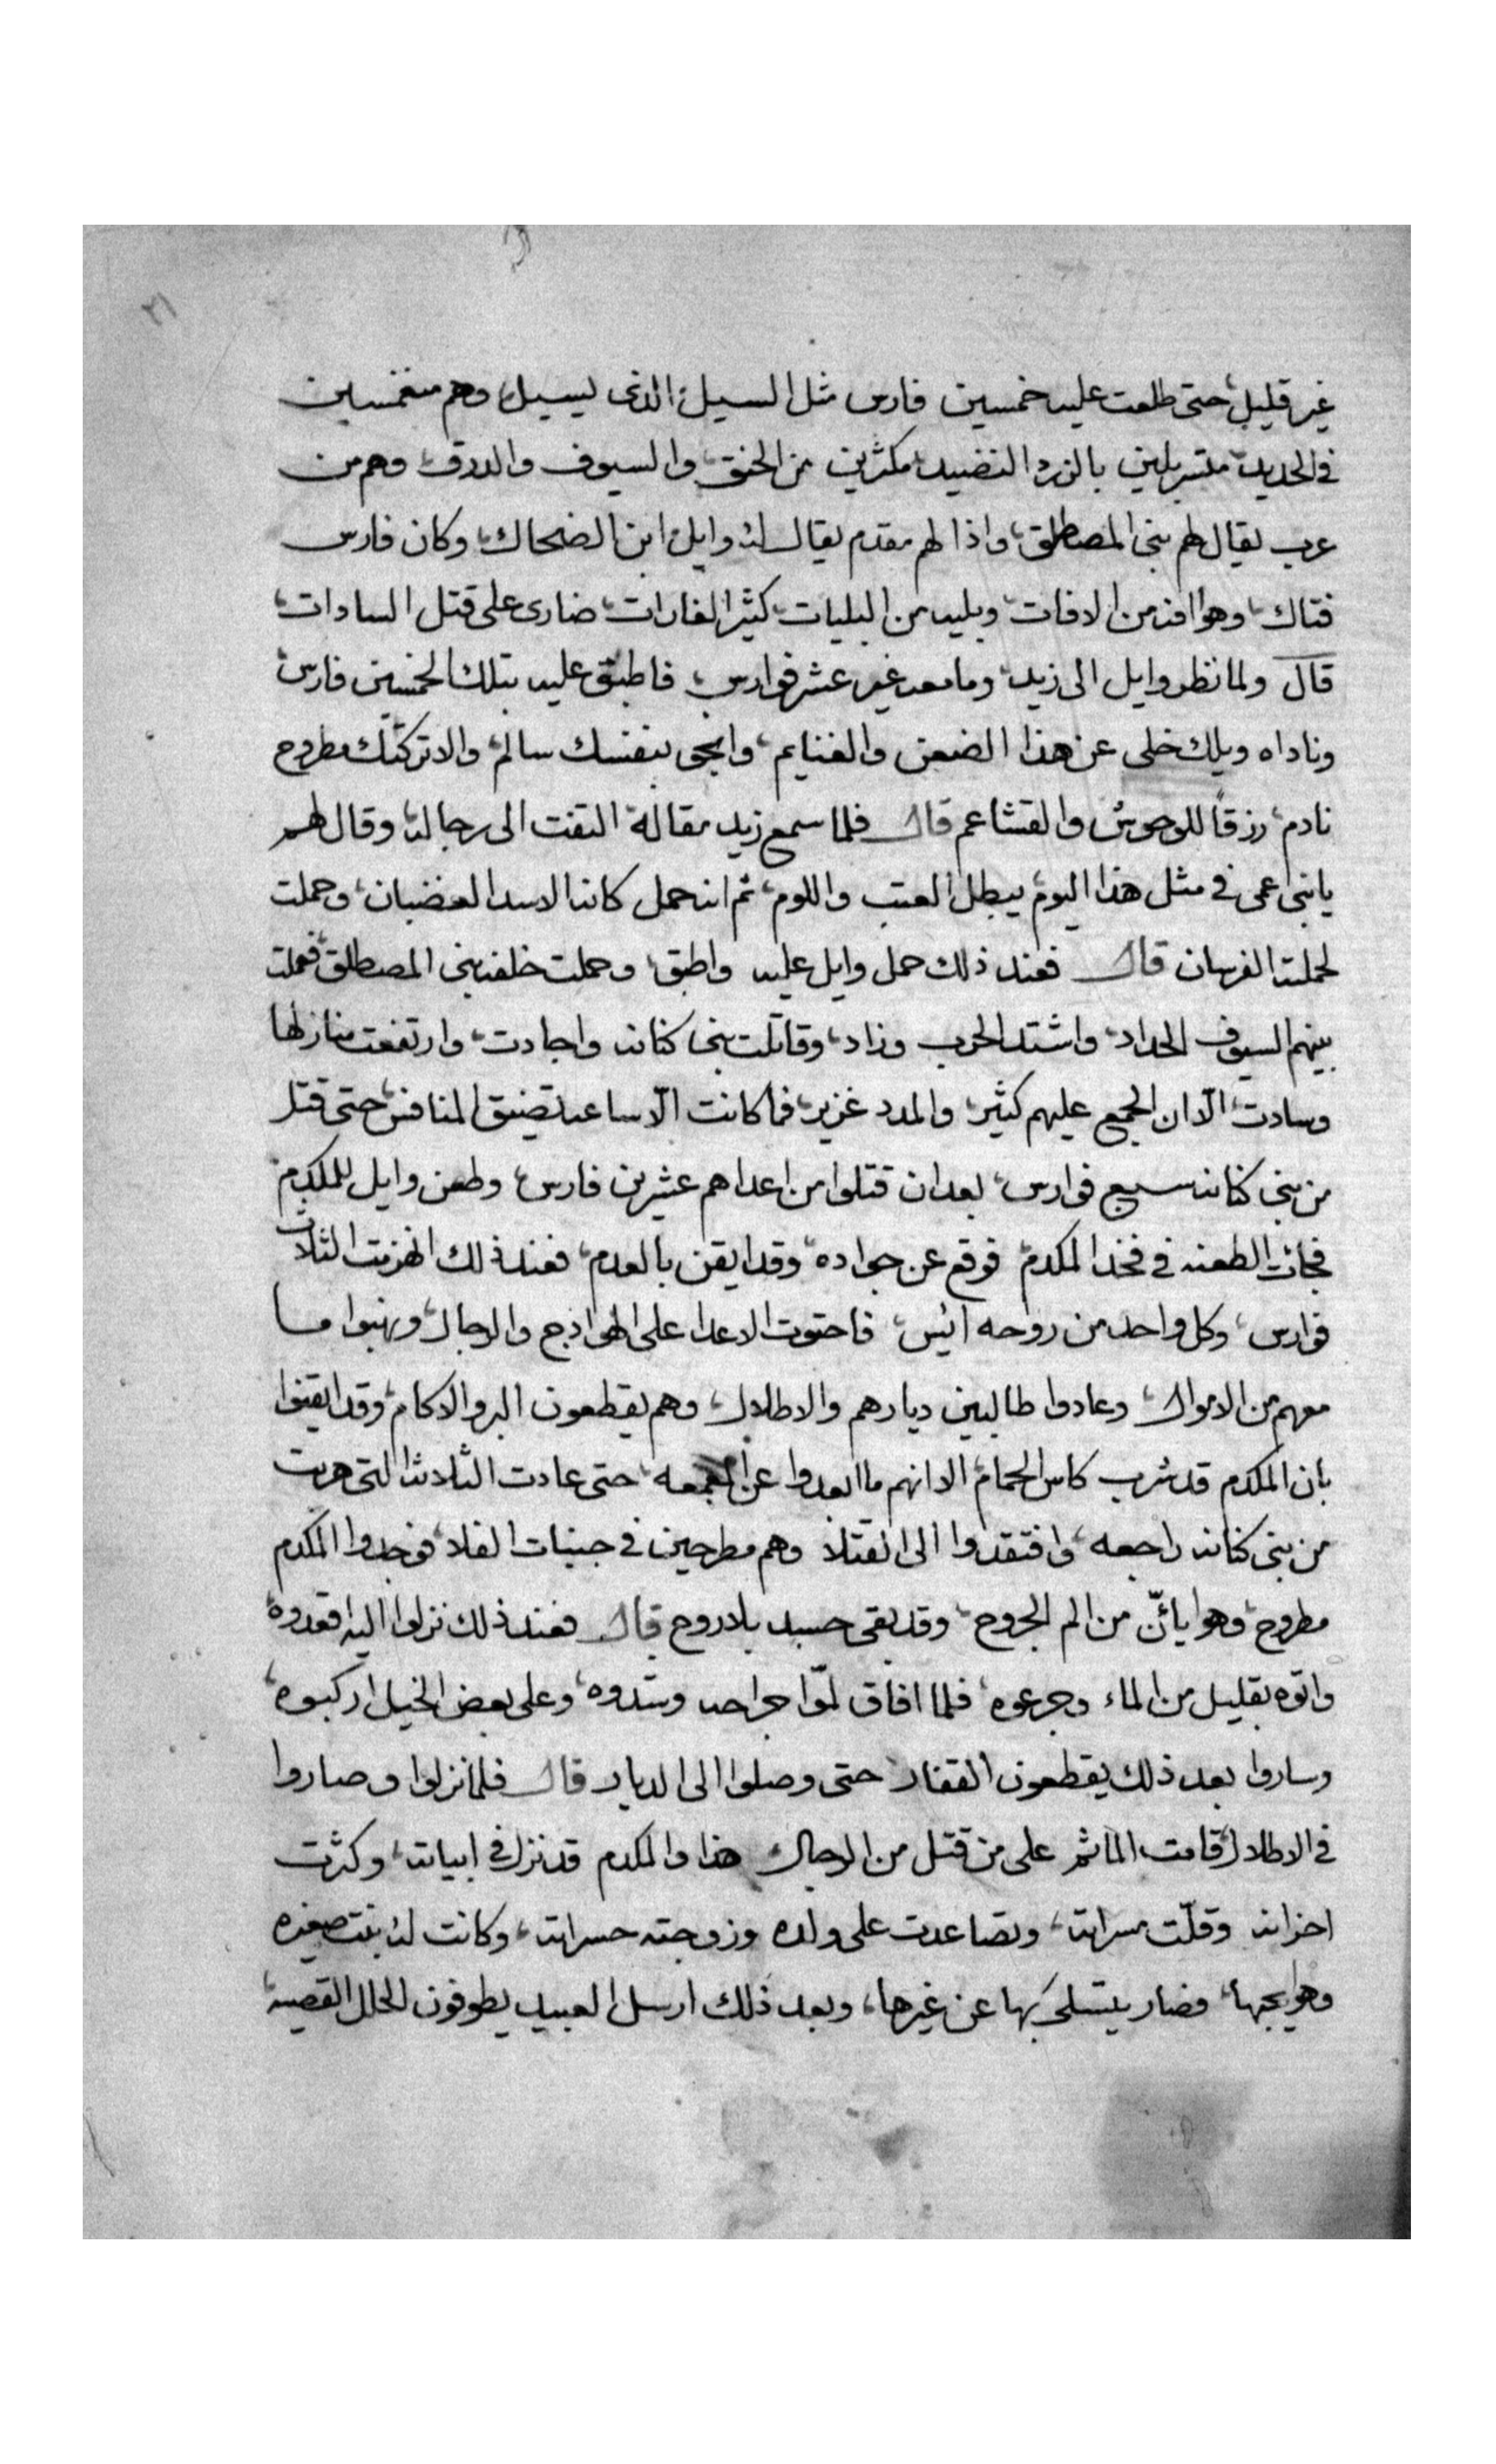 ٢١
غير قليل، حتى طلعت عليه خمسين فارس مثل السيل، الذى يسيل، وهم منغمسين
فى الحديد، متسربلين بالزرد النضيد، مكثرين من الحنق، والسيوف والدرق، وهم من
عرب يقال لهم بنى المصطلق، واذا لهم مقدم يقال له وايل ابن الضحاك، وكان فارس
فتاك، وهوا افه من الافات، وبليه من البليات، كثير الغارات، ضارى على قتل السادات،
قال ولما نظر وايل الى زيد، وما معه غير عشر فوارس، فاطبق عليه بتلك الخمسين فارس
وناداه ويلك خلى عن هذا الضعن والغنايم، وانجى بنفسك سالم، والا تركتك مطروح
نادم، رزقاً للوحوش والقشاعم قال فلما سمع زيد مقالة التفت الى رجاله، وقال لهم
يابنى عمى فى مثل هذا اليوم يبطل العتب واللوم، ثم انه حمل كانه الاسد الغضبان، وحملت
لحملته الفرسان قال فعند ذلك حمل وايل عليه واطبق، وحملت خلفه بنى المصطلق، فعملت
بينهم السيوف الحداد، واشتد الحرب وزاد، وقاتلت بنى كنانه واجادت، وارتفعت منازلها
وسادت، الّا ان الجمع عليهم كثير، والمدد غزير، فما كانت الّا ساعه تضيق المنافس، حتى قتل
من بنى كنانه سبع فوارس، بعد ان قتلوا من اعداهم عشرين فارس، وطعن وايل للمكدم
فجائت الطعنه فى فخد المكدم، فوقع عن جواده، وقد ايقن بالعدم، فعند ذلك انهزمت الثلاث
فوارس، وكل واحد من روحه ائيس، فاحتوت الاعدا على الهوادج والرحال، ونهبوا ما
معهم من الاموال، وعادوا طالبين ديارهم والاطلال، وهم يقطعون البر والاكام، وقد ايقنوا
بان المكدم قد شرب كاس الحمام، الا انهم ما ابعدوا عن المعمعه، حتى عادت الثلاثه التى هربت
من بنى كنانه راجعه، وافتقدوا الى القتلا وهم مطرحين فى جنبات الفلا، فوجدوا المكدم
مطروح، وهوا يائنّ من الم الجروح، وقد بقى جسد بلا روح قال فعند ذلك نزلوا اليه اقعدوه،
واتوه بقليل من الماء وجرعوه، فلما افاق لمّوا جراحه وشدوه، وعلى بعض الخيل اركبوه،
وساروا بعد ذلك يقطعون القفار، حتى وصلوا الى الديار قال فلما نزلوا وصاروا
فى الاطلال، قامت الماتم على من قتل من الرجال هذا والمكدم قد نزل فى ابياته، وكثرت
احزانه وقلّت مسراته، وتصاعدت على ولده وزوجته حسراته، وكانت له بنت صغيره
وهو يحبها، فصار يتسلى بها عن غيرها، وبعد ذلك ارسل العبيد يطوفون الحلل القصيه،